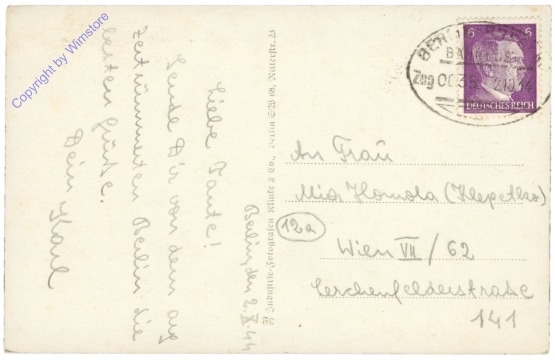 Copyright by Wimstore
Berlin, den 2.X.44
Liebe Tante!
Sende Dir von dem arg
zertrümmerten Berlin die
besten Grüße.
Dein Karl
Klinke & Co., Berlin SW 68, Ritterstr.
6 6
DEUTSCHES REICH
BERLIN
Zug 2.10.44
An Frau
Mia Homola (Klepetko)
12a
Wien VII / 62
Lerchenfelderstraße
141